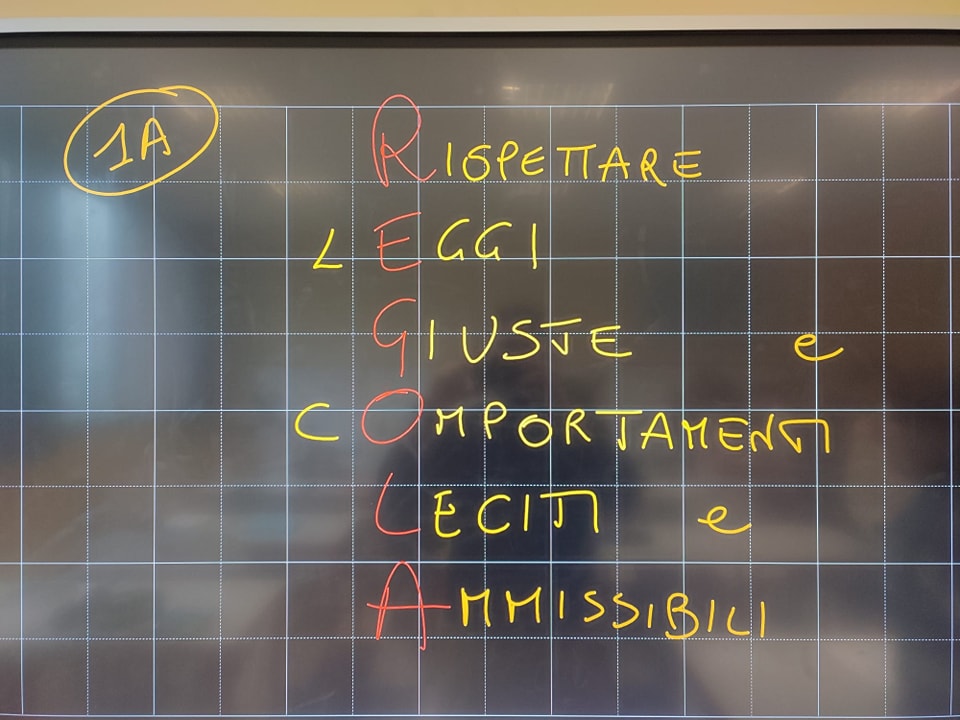 1A
RISPETTARE
LEGGI
GIUSTE e
COMPORTAMENTI
LECITI e
AMMISSIBILI